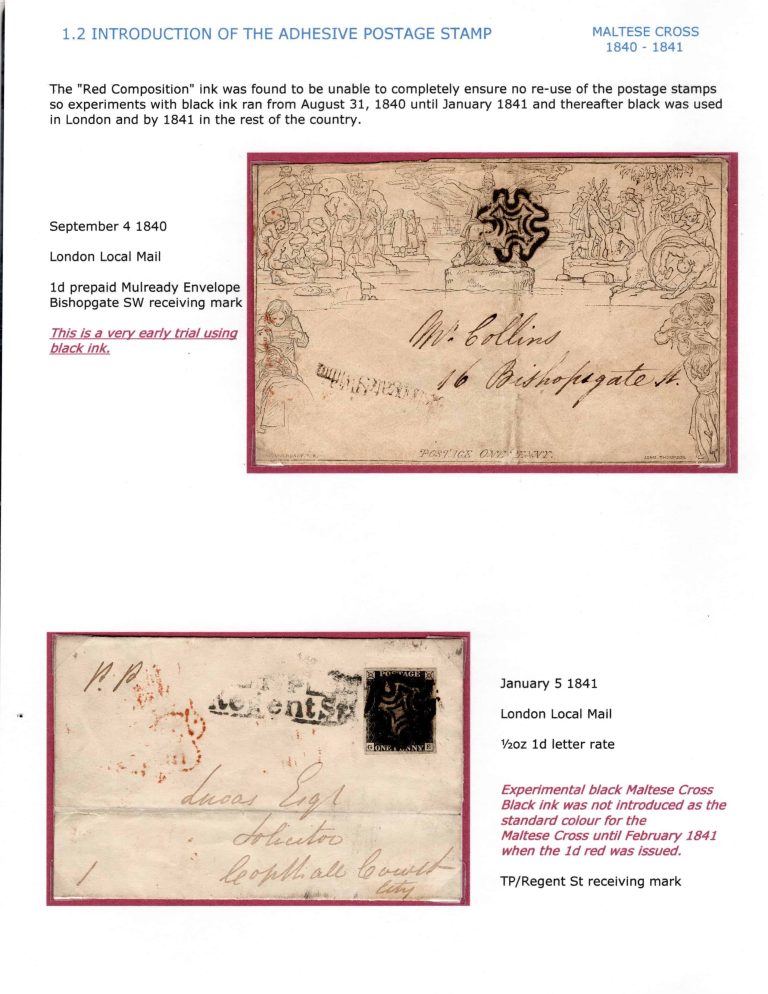 1.2 INTRODUCTION OF THE ADHESIVE POSTAGE STAMP
MALTESE CROSS
1840 - 1841
The "Red Composition" ink was found to be unable to completely ensure no re-use of the postage stamps
so experiments with black ink ran from August 31, 1840 until January 1841 and thereafter black was used
in London and by 1841 in the rest of the country.
September 4 1840
London Local Mail
1d prepaid Mulready Envelope
Bishopgate SW receiving mark
This is a very early trial using
black ink.
Mr. Collins
16 Bishopsgate St.
POSTAGE ONE PENNY.
JOHN THOMPSON
p.p
T.P
Regent St
POSTAGE
G ONE PENNY E
Lucas Esqr
Solicitor
Copthall Court
City
1
January 5 1841
London Local Mail
½oz 1d letter rate
Experimental black Maltese Cross
Black ink was not introduced as the
standard colour for the
Maltese Cross until February 1841
when the 1d red was issued.
TP/Regent St receiving mark